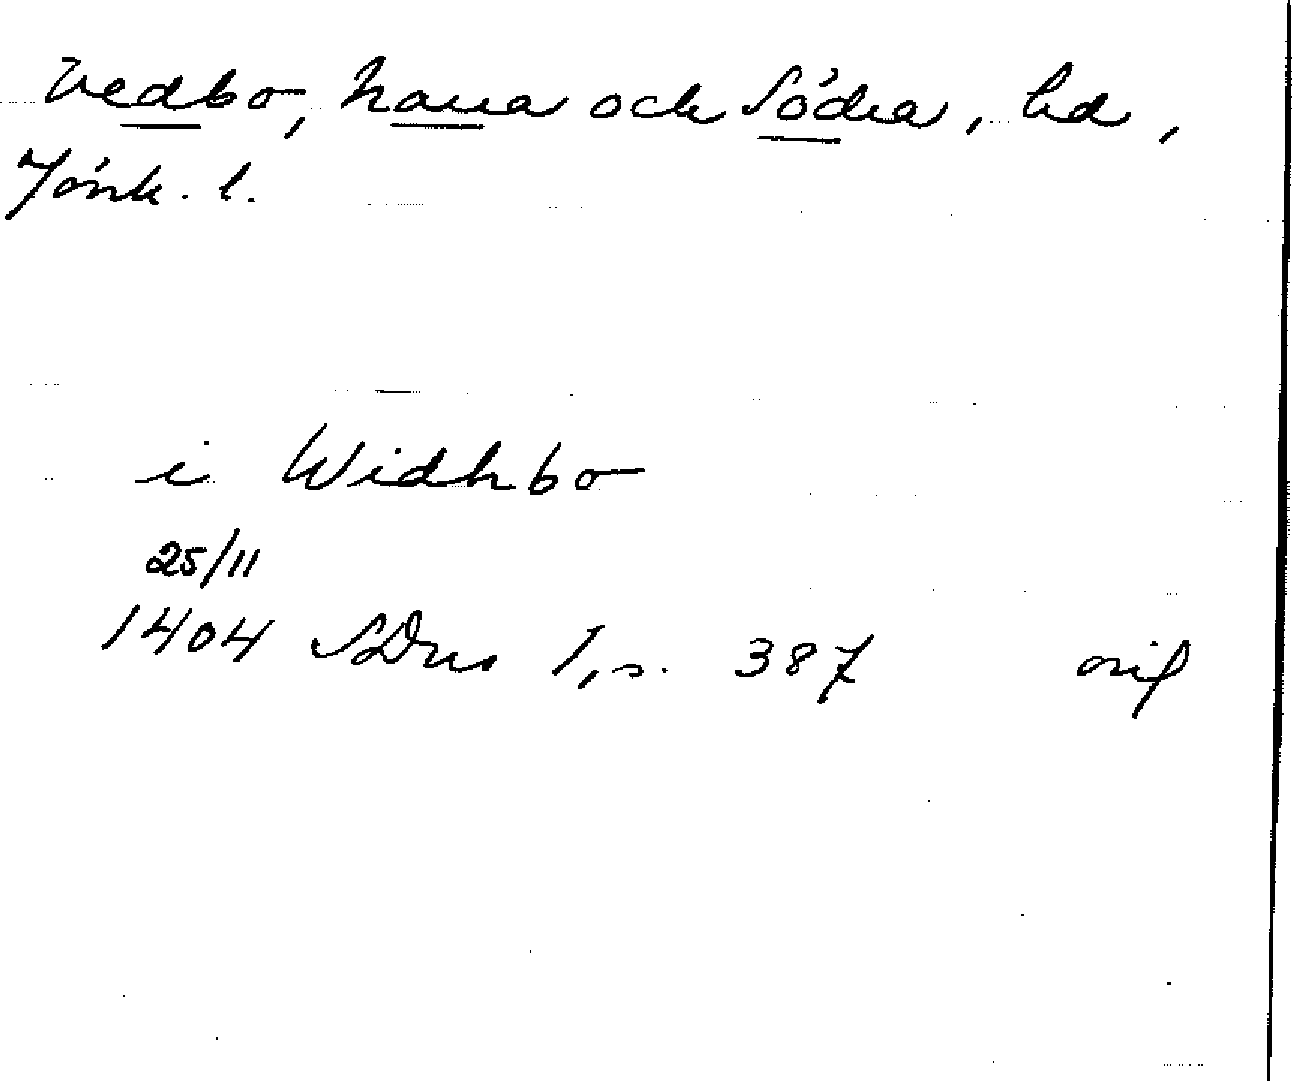 Vedbo, Norra och Södra, hd,
Jönk. l.
i Widhbo
25/11
1404 SDns 1, s. 387 orig